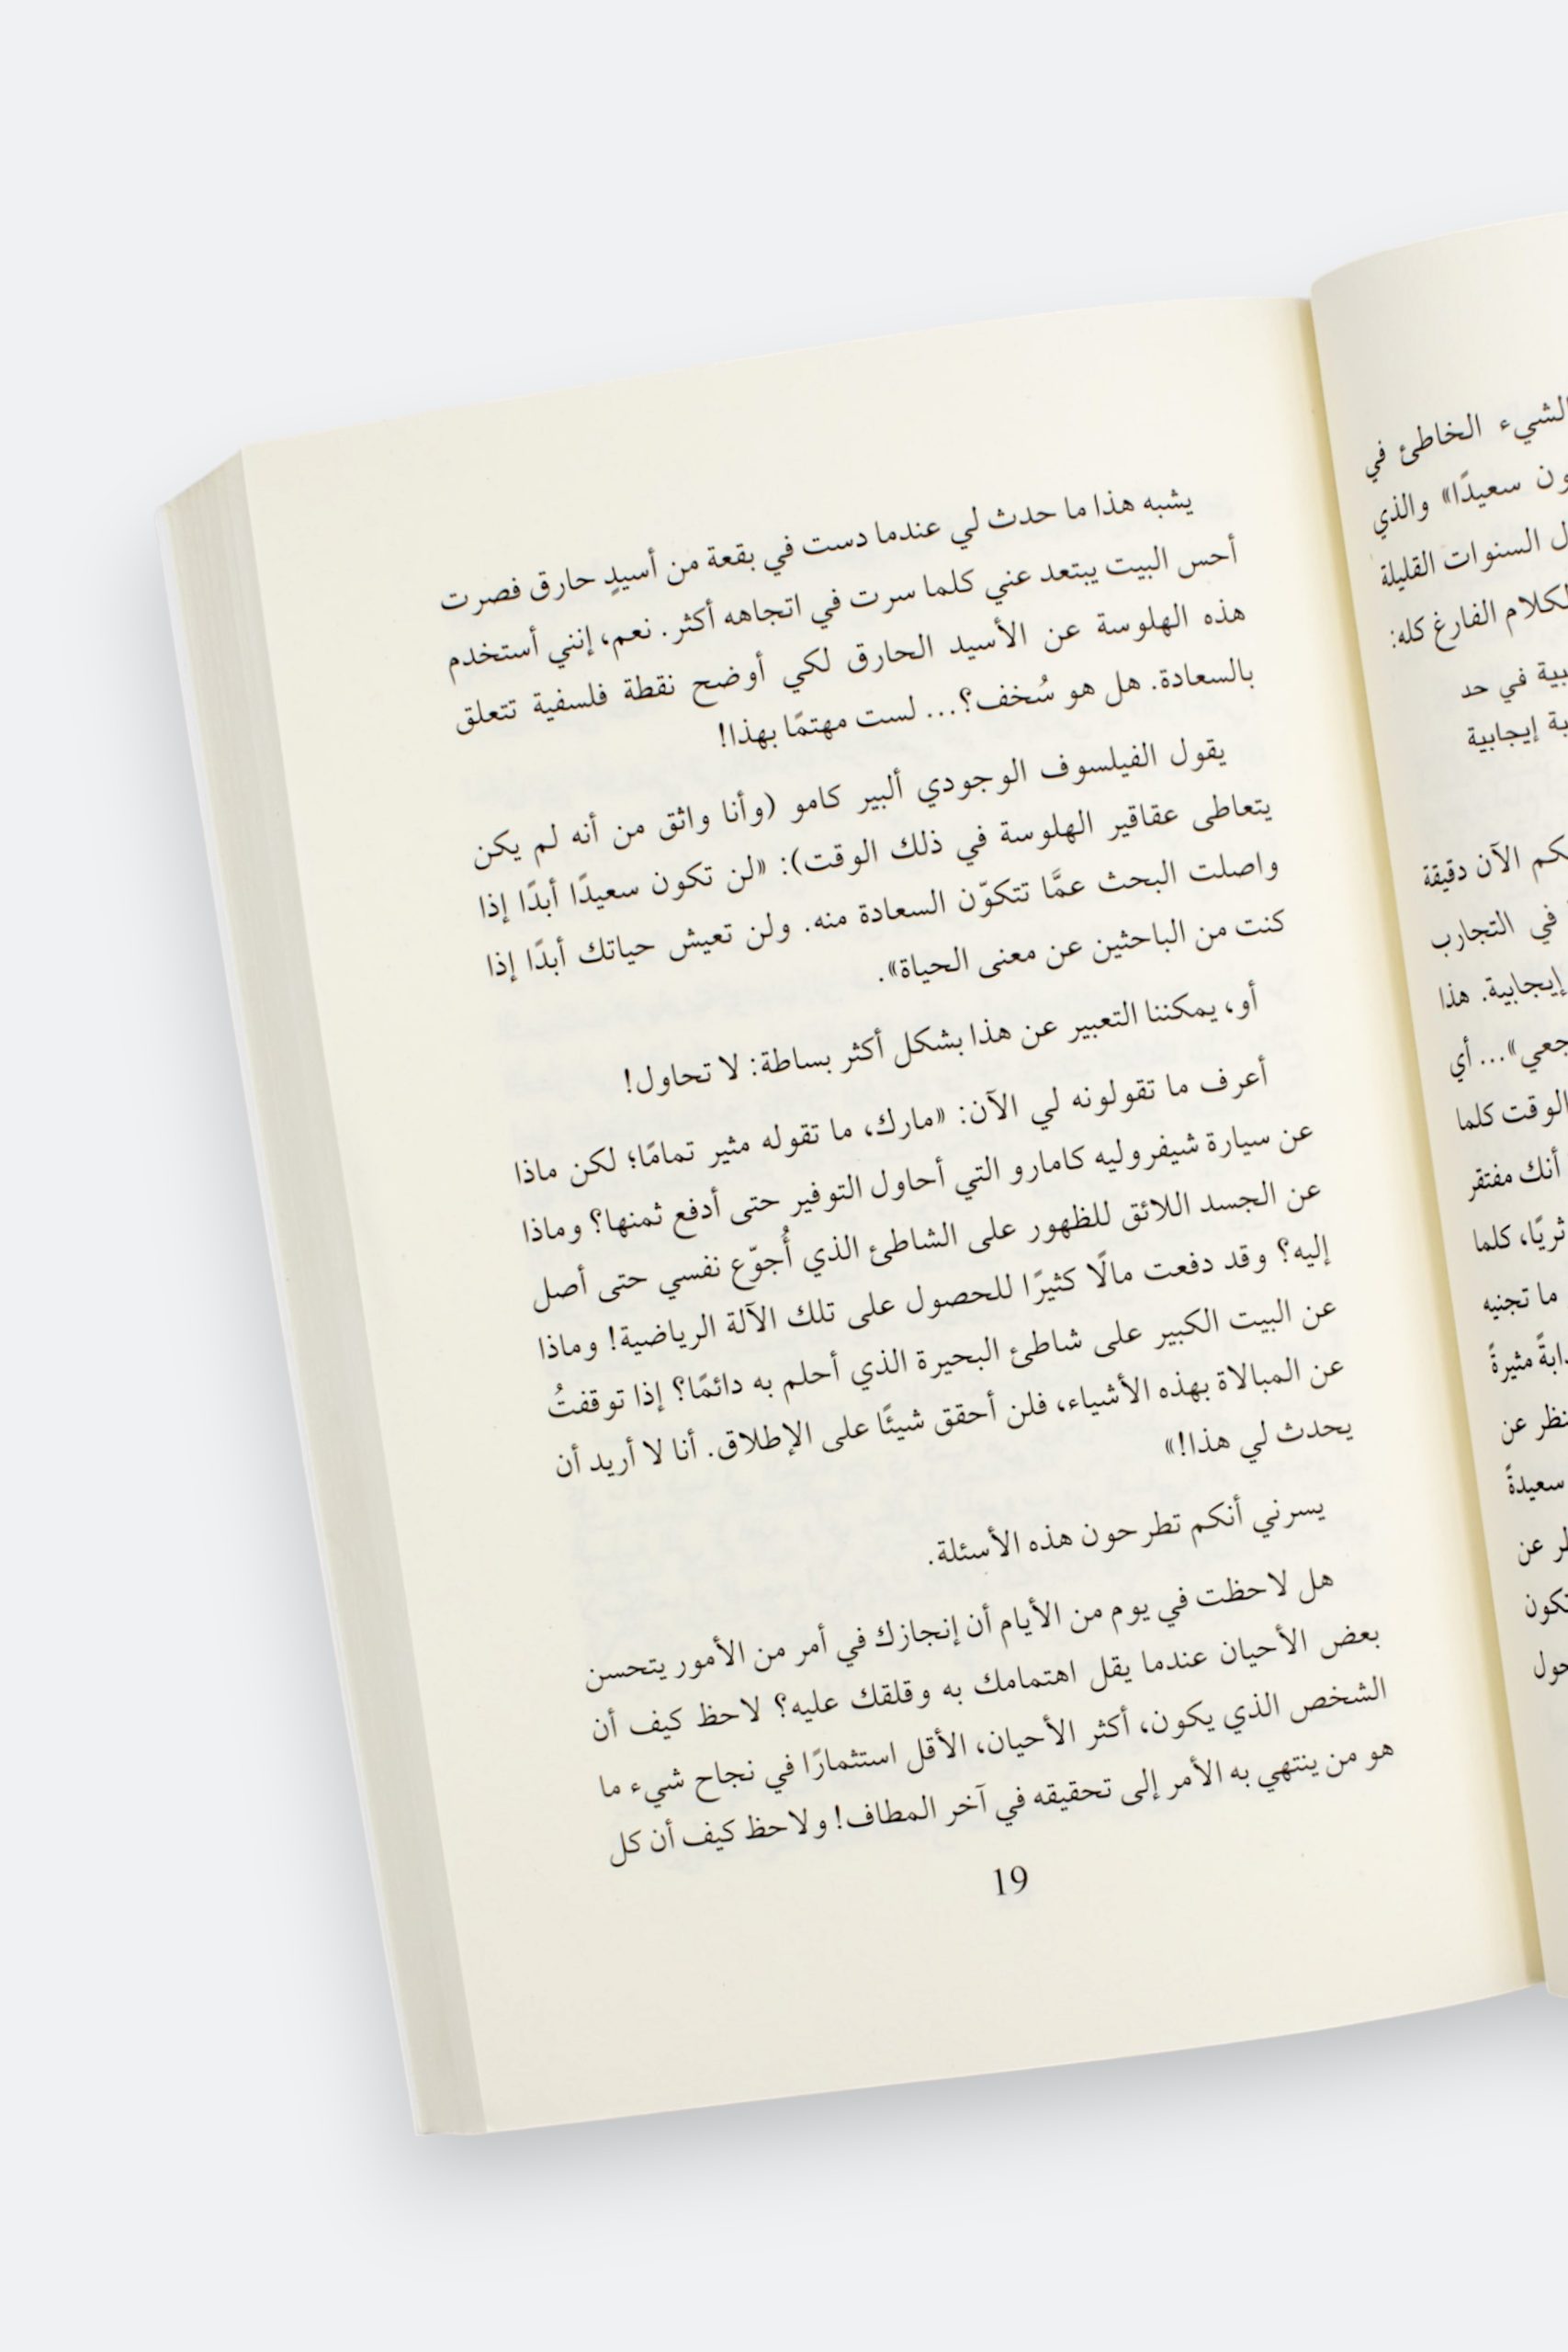 الشيء الخاطئ في
سعيدًا» والذي
السنوات القليلة
الكلام الفارغ كله:
في حد
إيجابية
الآن دقيقة
في التجارب
إيجابية. هذا
... أي
الوقت كلما
أنك مفتقر
ثريًا، كلما
ما تجنيه
مثيرةً
عن
سعيدةً
عن
يشبه هذا ما حدث لي عندما دست في بقعة من أسيدٍ حارق فصرت
أحس البيت يبتعد عني كلما سرت في اتجاهه أكثر. نعم، إنني أستخدم
هذه الهلوسة عن الأسيد الحارق لكي أوضح نقطة فلسفية تتعلق
بالسعادة. هل هو سُخف؟... لست مهتمًا بهذا!
يقول الفيلسوف الوجودي ألبير كامو (وأنا واثق من أنه لم يكن
يتعاطى عقاقير الهلوسة في ذلك الوقت): «لن تكون سعيدًا أبدًا إذا
واصلت البحث عمَّا تتكوّن السعادة منه. ولن تعيش حياتك أبدًا إذا
كنت من الباحثين عن معنى الحياة».
أو، يمكننا التعبير عن هذا بشكل أكثر بساطة: لا تحاول!
أعرف ما تقولونه لي الآن: «مارك، ما تقوله مثير تمامًا؛ لكن ماذا
عن سيارة شيفروليه كامارو التي أحاول التوفير حتى أدفع ثمنها؟ وماذا
عن الجسد اللائق للظهور على الشاطئ الذي أُجوّع نفسي حتى أصل
إليه؟ وقد دفعت مالًا كثيرًا للحصول على تلك الآلة الرياضية! وماذا
عن البيت الكبير على شاطئ البحيرة الذي أحلم به دائمًا؟ إذا توقفتُ
عن المبالاة بهذه الأشياء، فلن أحقق شيئًا على الإطلاق. أنا لا أريد أن
يحدث لي هذا!»
يسرني أنكم تطرحون هذه الأسئلة.
هل لاحظت في يوم من الأيام أن إنجازك في أمر من الأمور يتحسن
بعض الأحيان عندما يقل اهتمامك به وقلقك عليه؟ لاحظ كيف أن
الشخص الذي يكون، أكثر الأحيان، الأقل استثمارًا في نجاح شيء ما
هو من ينتهي به الأمر إلى تحقيقه في آخر المطاف! ولاحظ كيف أن كل
19